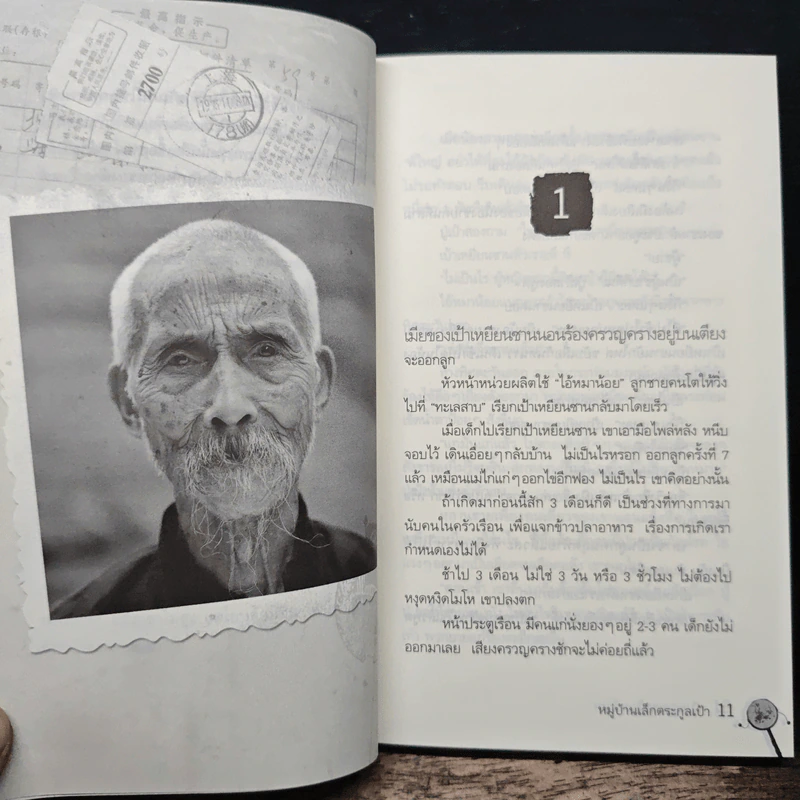 2700
1
เมียของเป้าเหยียนซานนอนร้องครวญครางอยู่บนเตียง
จะออกลูก
หัวหน้าหน่วยผลิตใช้ “ไอ้หมาน้อย” ลูกชายคนโตให้วิ่ง
ไปที่ “ทะเลสาบ” เรียกเป้าเหยียนซานกลับมาโดยเร็ว
เมื่อเด็กไปเรียกเป้าเหยียนซาน เขาเอามือไพล่หลัง หนีบ
จอบไว้ เดินเอื่อยๆกลับบ้าน ไม่เป็นไรหรอก ออกลูกครั้งที่ 7
แล้ว เหมือนแม่ไก่แก่ๆออกไข่อีกฟอง ไม่เป็นไร เขาคิดอย่างนั้น
ถ้าเกิดมาก่อนนี้สัก 3 เดือนก็ดี เป็นช่วงที่ทางการมา
นับคนในครัวเรือน เพื่อแจกข้าวปลาอาหาร เรื่องการเกิดเรา
กำหนดเองไม่ได้
ช้าไป 3 เดือน ไม่ใช่ 3 วัน หรือ 3 ชั่วโมง ไม่ต้องไป
หงุดหงิดโมโห เขาปลงตก
หน้าประตูเรือน มีคนแก่นั่งยองๆอยู่ 2-3 คน เด็กยังไม่
ออกมาเลย เสียงครวญครางชักจะไม่ค่อยถี่แล้ว
หมู่บ้านเล็กตระกูลเป้า 11